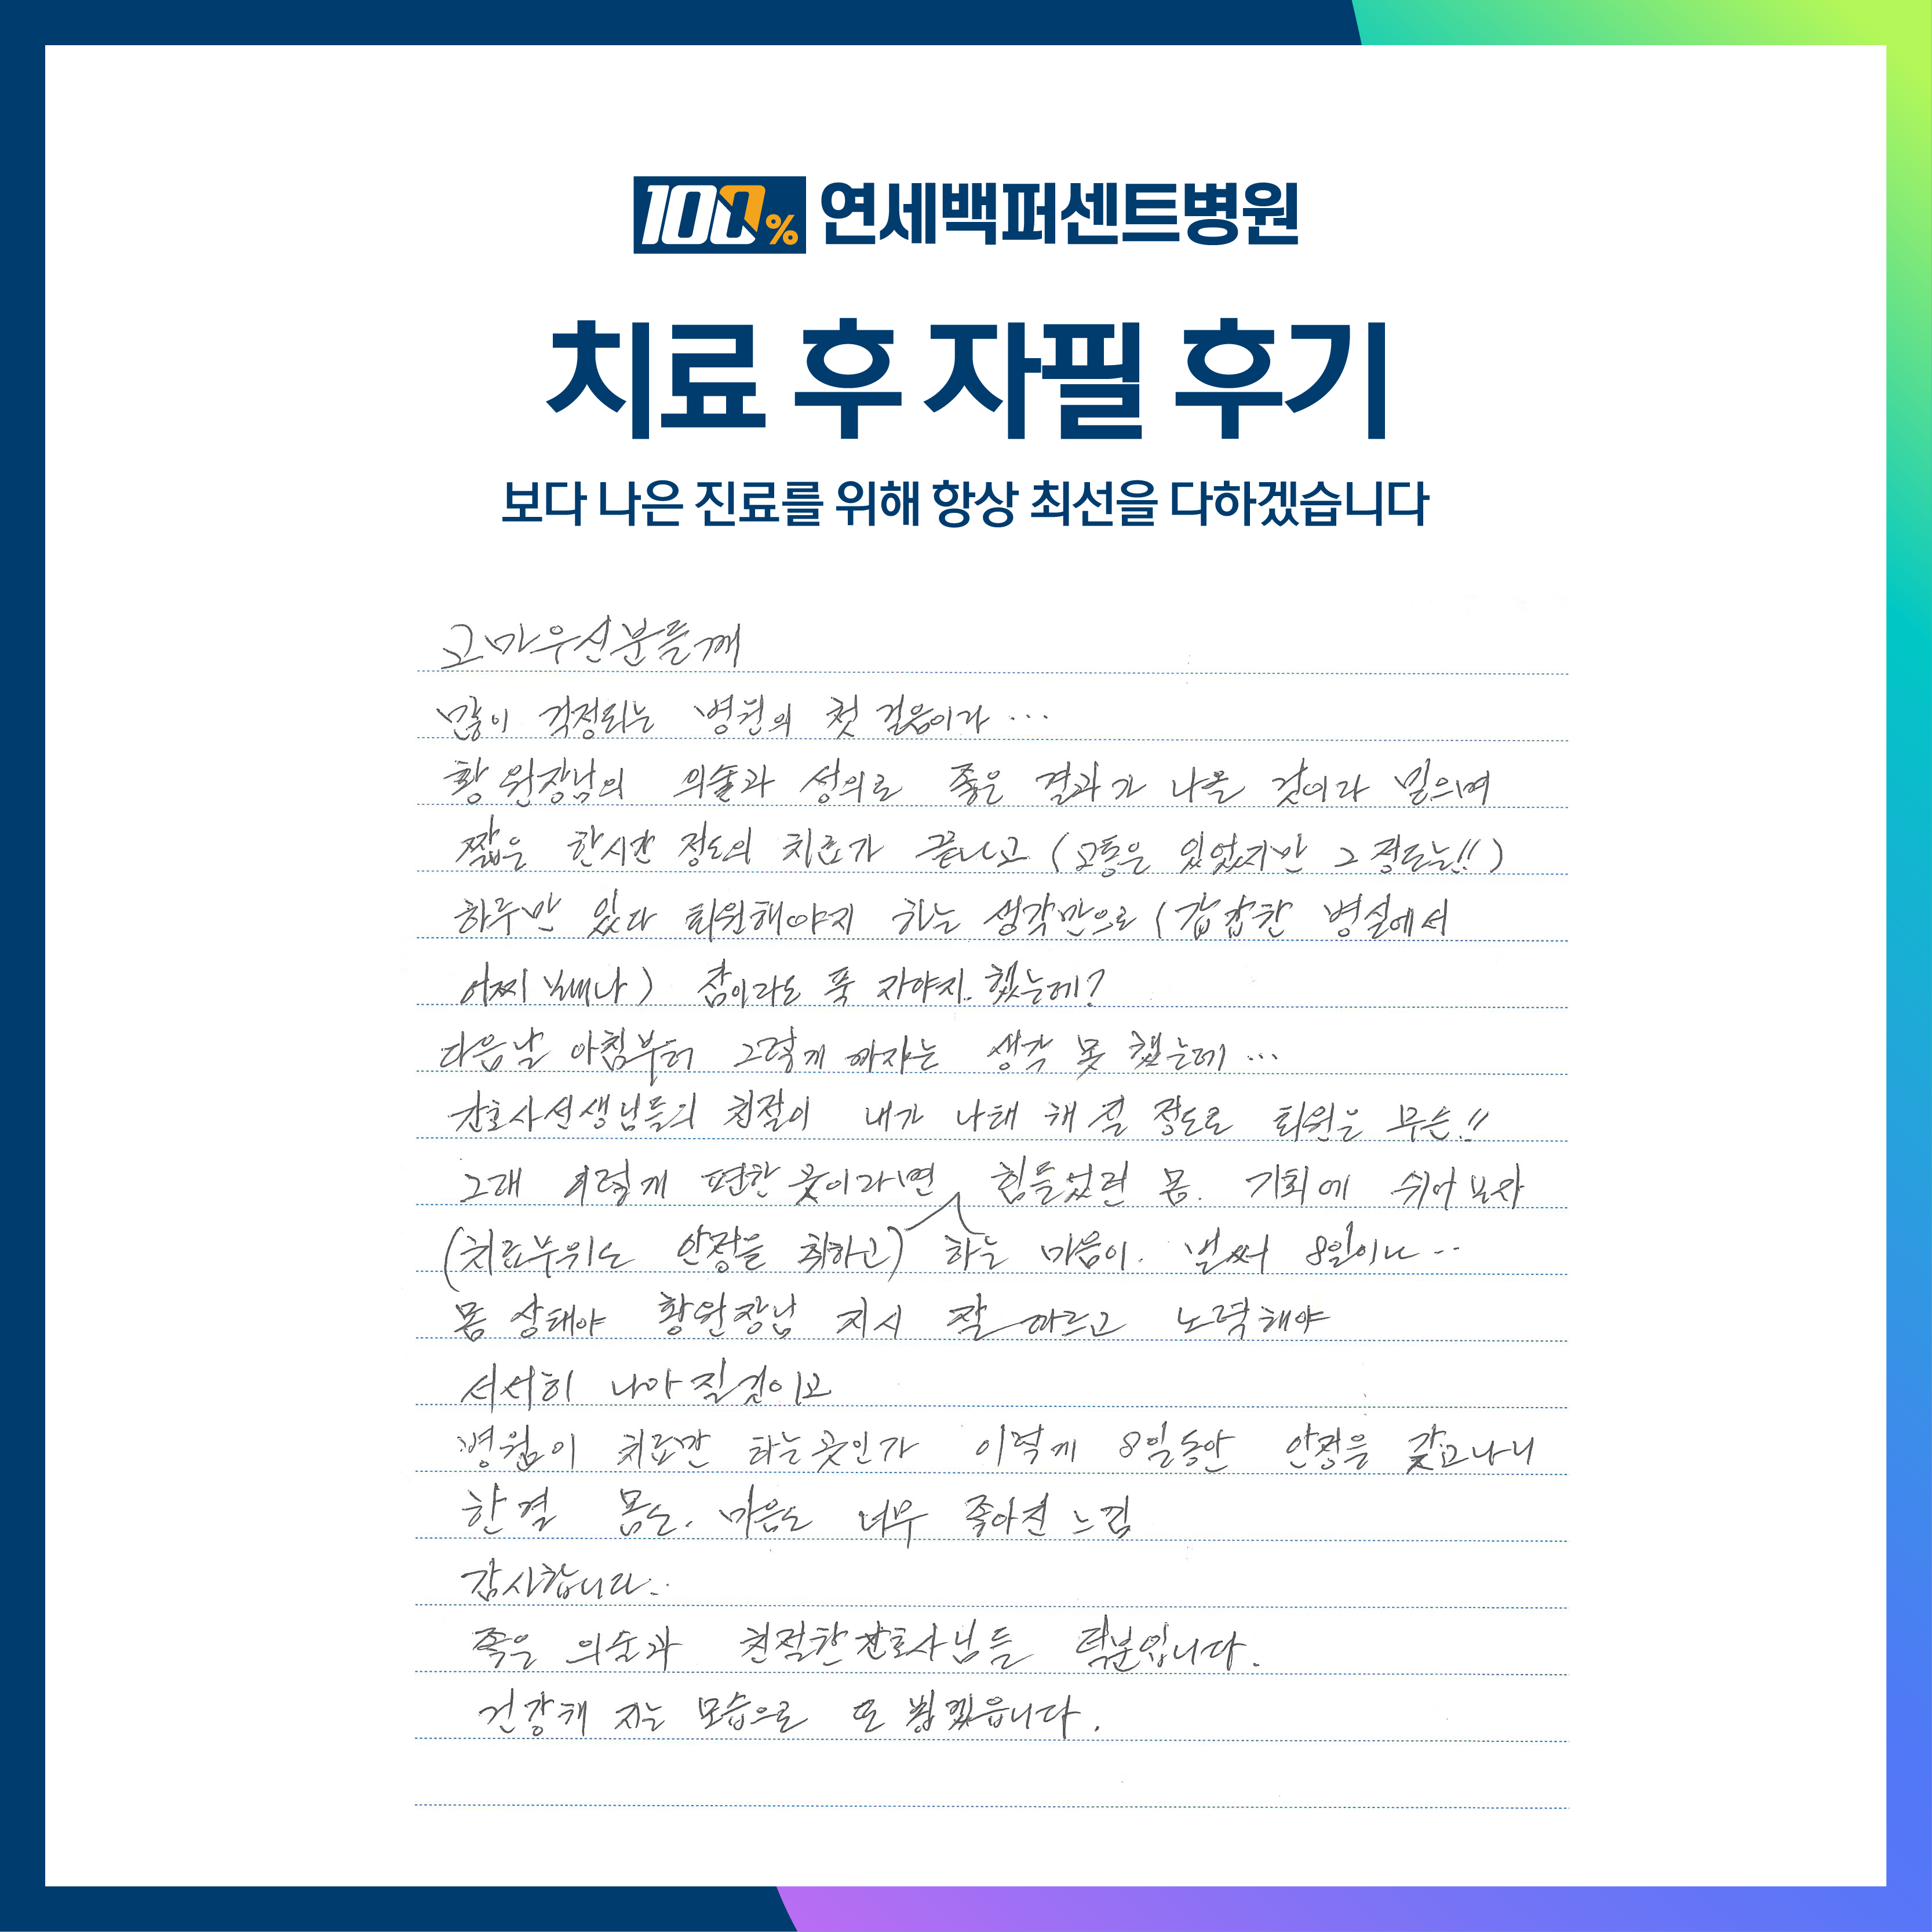 100% 연세백퍼센트병원
치료 후 자필 후기
보다 나은 진료를 위해 항상 최선을 다하겠습니다
고마우신분들께
많이 걱정되는 병원의 첫 걸음이라 ...
황 원장님의 의술과 성의로 좋은 결과가 나올 것이라 믿으며
짧은 한시간 정도의 치료가 끝나고 (고통은 있었지만 그 정도는!!)
하루만 있다 퇴원해야지 하는 생각만으로 (갑갑한 병실에서
어찌 보내나) 잠이라도 푹 자야지. 했는데?
다음날 아침부터 그렇게 바쟈는 생각 못 했는데 ...
간호사선생님들의 친절이 내가 나태 해 질 정도로 퇴원은 무슨!!
그래 이렇게 편한 곳이라면 힘들었던 몸. 기회에 쉬어 보자
(치료부위도 안정을 취하고) 하는 마음이. 벌써 8일이나 ..
몸 상태야 황원장님 지시 잘 따르고 노력해야
서서히 나아 질것이고
병원이 치료만 하는곳인가 이렇게 8일동안 안정을 갖고나니
한결 몸도. 마음도 너무 좋아진 느낌
감사합니다..
좋은 의술과 친절한간호사님들 덕분입니다.
건강해 지는 모습으로 또 뵙겠읍니다.